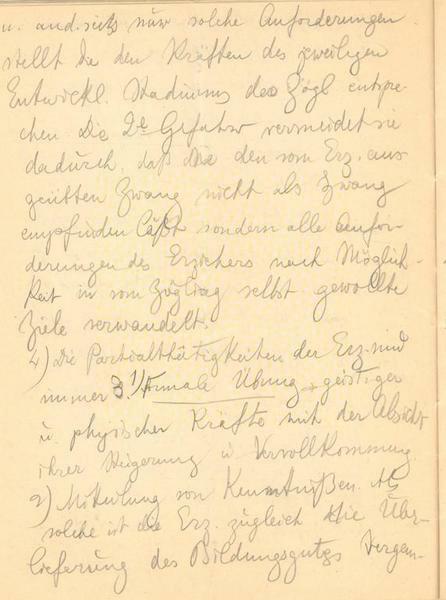 u. and.seits nur solche Anforderungen
stellt die den Kräften des jeweiligen
Entwickl. Stadiums des Zögl entspre-
chen. Die 2e Gefahr vermeidet sie
dadurch, daß sie den vom Erz. aus
geübten Zwang nicht als Zwang
empfinden läßt sondern alle Anfor-
derungen des Erziehers nach Möglich-
keit in vom Zögling selbst gewollte
Ziele verwandelt.
4) Die Partialthätigkeiten der Erz. sind
immer 3 1) Formale Übung geistiger
u. physischer Kräfte mit der Absicht
ihrer Steigerung u Vervollkommung
2) Mitteilung von Kenntnißen. Als
solche ist die Erz. zugleich die Über-
lieferung des Bildungsgutes Vergan-